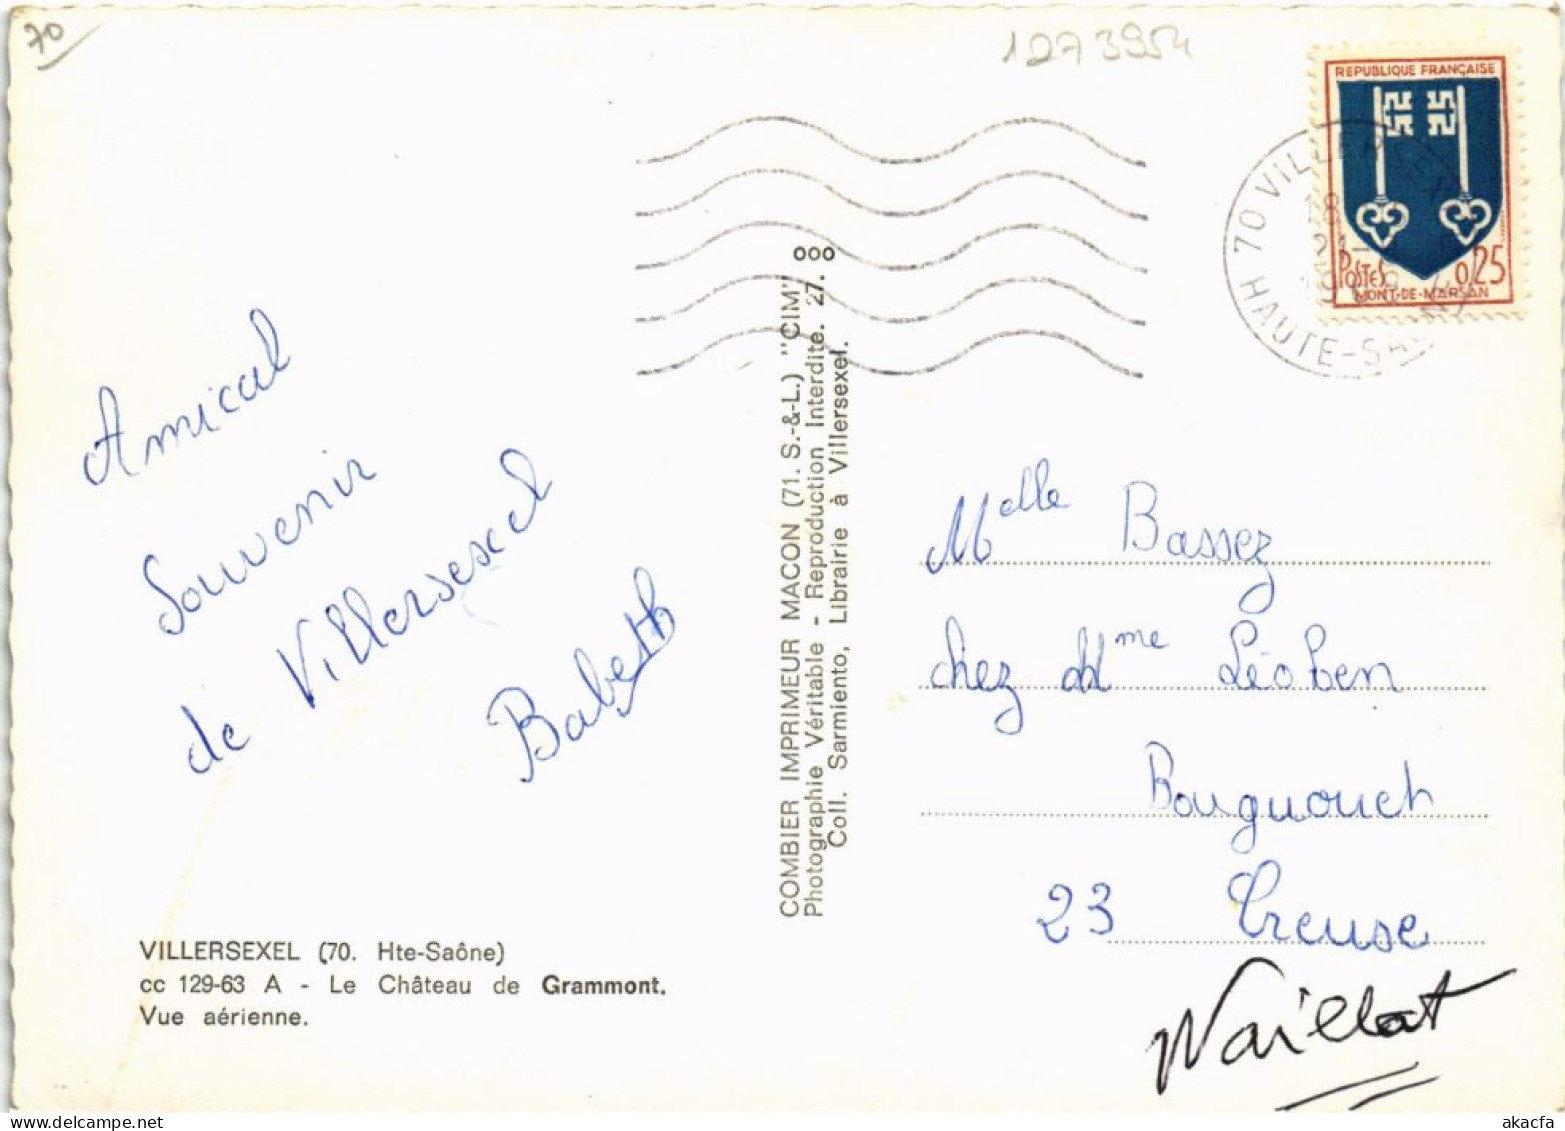 70
1273954
REPUBLIQUE FRANÇAISE
POSTES 0,25
MONT-DE-MARSAN
70 VILLERSEXEL
18
HAUTE-SAÔNE
Amical
Souvenir
de Villersexel
Babeth
COMBIER IMPRIMEUR MACON (71. S.-&-L.) "CIM"
Photographie Véritable - Reproduction Interdite. 27. ooo
Coll. Sarmiento, Librairie à Villersexel.
Melle Bassez
chez Mme Léoben
Bourguouch
23 Creuse
Vaillat
VILLERSEXEL (70. Hte-Saône)
cc 129-63 A - Le Château de Grammont.
Vue aérienne.
akacfa